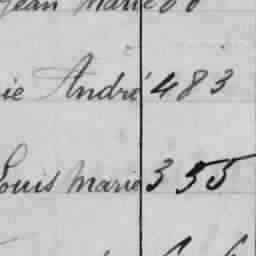 Jean Marie
ie André 483
Louis Marie 355